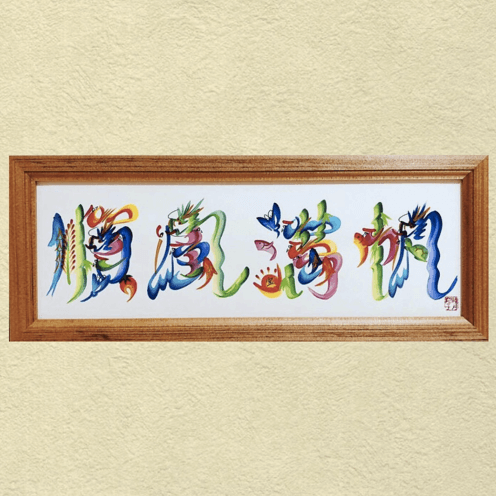 順風満帆